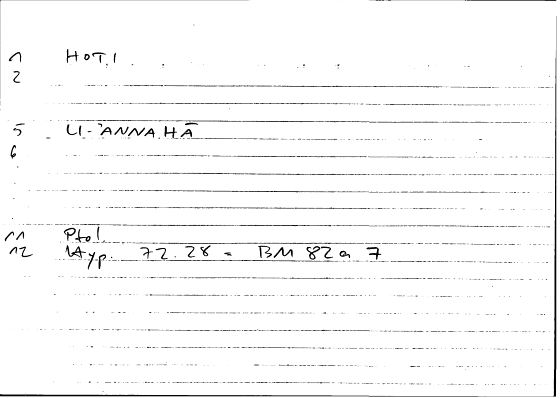 1 HOT.I
2
5 LI-ʾANNA.HĀ
6
11 Ptol.
12 Hyp. 72.28 = BM 82 a 7